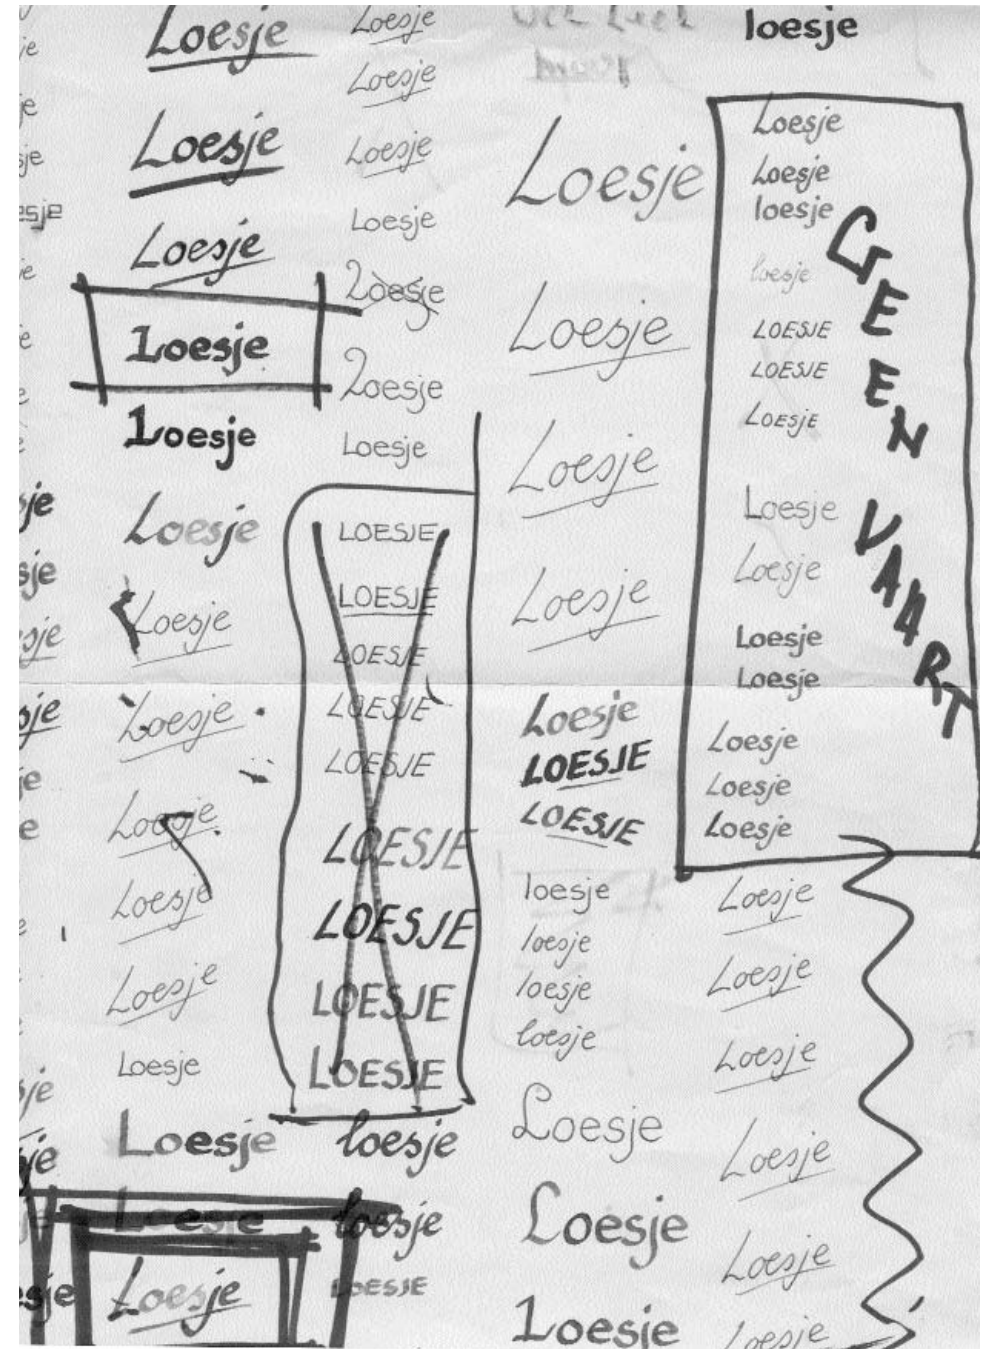 je
je
sje
esje
je
e
je
sje
sje
je
je
e
je
je
esje
Loesje
Loesje
Loesje
Loesje
Loesje
Loesje
Loesje
Loesje
Loesje
Loesje
Loesje
Loesje
Loesje
Loesje
Loesje
Loesje
Loesje
Loesje
Loesje
Loesje
Loesje
Loesje
LOESJE
LOESJE
LOESJE
LOESJE
LOESJE
LOESJE
LOESJE
LOESJE
LOESJE
loesje
loesje
LOESJE
Loesje
Loesje
Loesje
Loesje
Loesje
LOESJE
LOESJE
loesje
loesje
loesje
loesje
Loesje
Loesje
Loesje
loesje
Loesje
Loesje
loesje
loesje
LOESJE
LOESJE
LOESJE
Loesje
Loesje
Loesje
Loesje
Loesje
Loesje
Loesje
Loesje
Loesje
Loesje
Loesje
Loesje
Loesje
GEEN
VAART